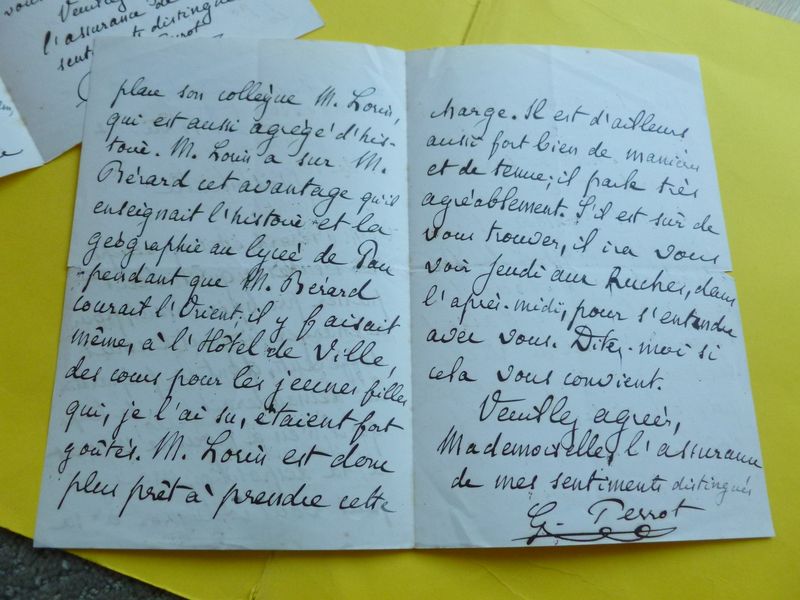 vous
Veuillez
l'assurance de
sentiments distingués
Perrot
place son collègue M. Louis,
qui est aussi agrégé d'his-
toire. M. Louis a sur M.
Bérard cet avantage qu'il
enseignait l'histoire et la
géographie au lycée de Pau
pendant que M. Bérard
courait l'Orient; il y faisait
même, à l'Hôtel de Ville,
des cours pour les jeunes filles
qui, je l'ai su, étaient fort
goûtés. M. Louis est donc
plus prêt à prendre cette
charge. Il est d'ailleurs
aussi fort bien de manières
et de tenue; il parle très
agréablement. S'il est sûr de
vous trouver, il ira vous
voir Jeudi aux Ruches, dans
l'après-midi, pour s'entendre
avec vous. Dites-moi si
cela vous convient.
Veuillez agréer,
Mademoiselle, l'assurance
de mes sentiments distingués
G. Perrot